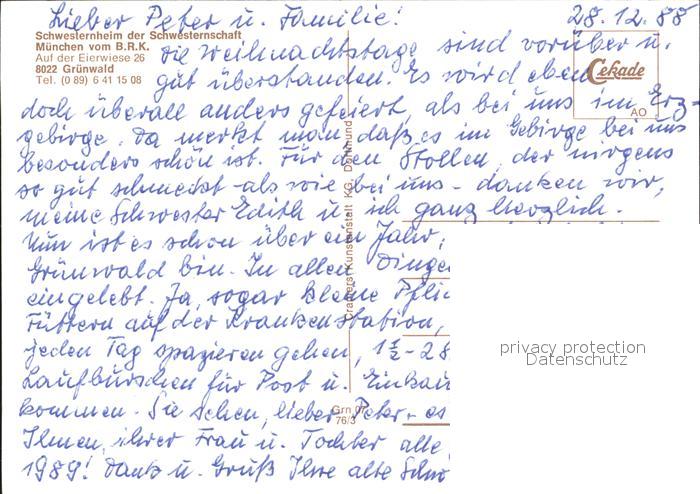 Lieber Peter u. Familie! 28.12.88
Schwesternheim der Schwesternschaft
München vom B.R.K.
Auf der Eierwiese 26
8022 Grünwald
Tel. (0 89) 6 41 15 08
Cekade
AO
die Weihnachtstage sind vorüber u.
gut überstanden. Es wird eben
doch überall anders gefeiert, als bei uns im Erz-
gebirge. Da merkt man daß es im Gebirge bei uns
besonders schön ist. Für den Stollen, der nirgens
so gut schmeckt als wie bei uns - danken wir,
meine Schwester Edith u. ich ganz herzlich.
Nun ist es schon über ein Jahr,
Grünwald bin. In allen Dinge
eingelebt. Ja, sogar kleine Pflic
Füttern auf der Krankenstation,
jeden Tag spazieren gehen, 1½-2
Laufburschen für Post u. Einkau
kommen. Sie sehen, lieber Peter, es
Ihnen, ihrer Frau u. Tochter alle
1989! Dank u. Gruß Ihre alte Schw
Krapfers Kunstanstalt KG, Dortmund
Grn 07
76/3
privacy protection
Datenschutz